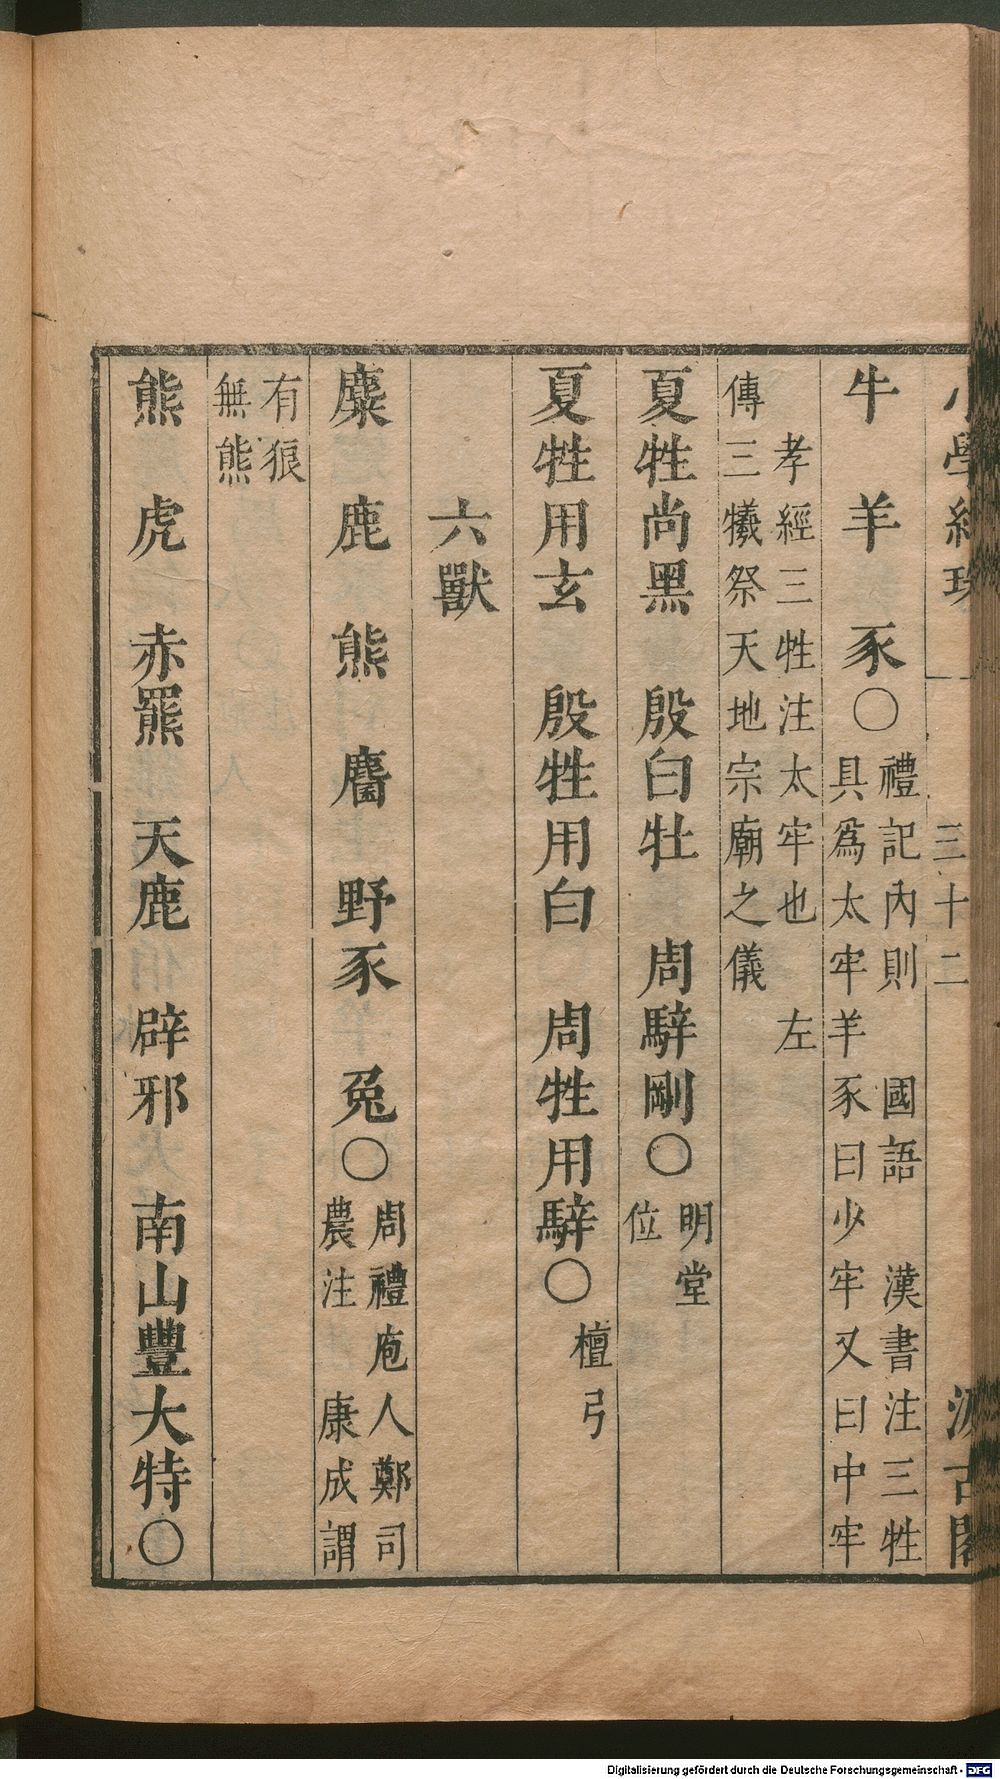 小學紺珠 三十二 汲古閣
牛 羊 豕〇禮記內則 國語 漢書注三牲
具為太牢羊豕曰少牢又曰中牢
孝經三牲注太牢也 左
傳三犧祭天地宗廟之儀
夏牲尚黑 殷白牡 周騂剛〇明堂
位
夏牲用玄 殷牲用白 周牲用騂〇檀弓
六獸
麋 鹿 熊 麕 野豕 兔〇周禮庖人鄭司
農注 康成謂
有狼
無熊
熊 虎 赤羆 天鹿 辟邪 南山豐大特〇
Digitalisierung gefördert durch die Deutsche Forschungsgemeinschaft - DFG